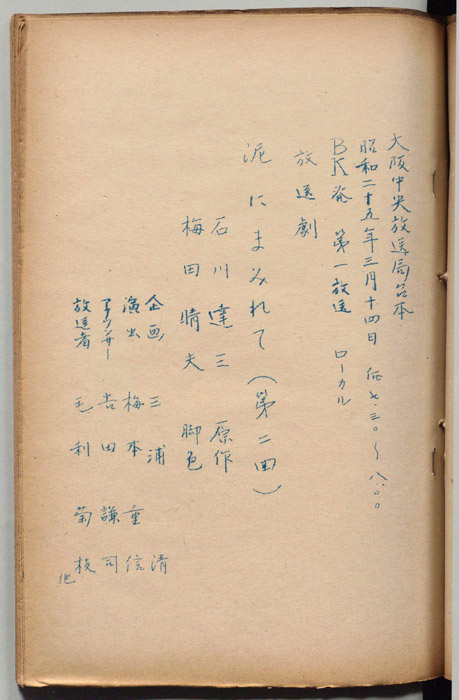 大阪中央放送局台本
昭和二十五年三月十四日 后七.三〇〜八.〇〇
BK発 第一放送 ローカル
放送劇
泥にまみれて(第二回)
石川達三 原作
梅田晴夫 脚色
企画 三浦清
演出 梅本重信
アナウンサー 吉田謙司
放送者 毛利菊枝
他